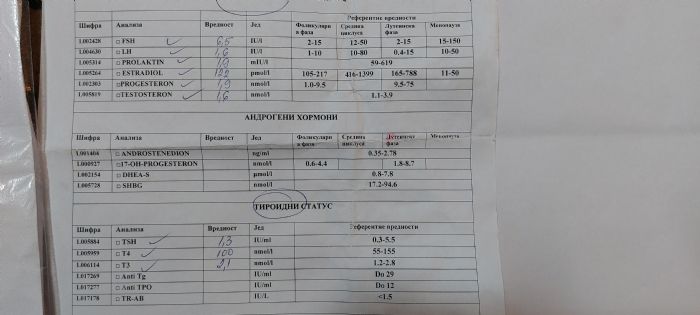 Референтне вредности
Шифра Анализа Вредност Јед Фоликуларна фаза Средина циклуса Лутеинска фаза Менопауза
1.002428 □ FSH 6,5 IU/l 2-15 12-50 2-15 15-150
1.004630 □ LH 1,6 IU/l 1-10 10-80 0.4-15 10-50
1.005314 □ PROLAKTIN mIU/l 59-619
1.005264 □ ESTRADIOL 122 pmol/l 105-217 416-1399 165-788 11-50
1.002303 □PROGESTERON 1,9 nmol/l 1.0-9.5 9.5-75
1.005819 □TESTOSTERON 1,6 nmol/l 1.1-3.9
АНДРОГЕНИ ХОРМОНИ
Шифра Анализа Вредност Јед Фоликуларна фаза Средина циклуса Лутеинска фаза Менопауза
1.001404 □ ANDROSTENEDION ng/ml 0.35-2.78
1.000927 □17-OH-PROGESTERON nmol/l 0.6-4.4 1.8-8.7
1.002154 □ DHEA-S µmol/l 0.8-7.8
1.005728 □ SHBG nmol/l 17.2-94.6
ТИРОИДНИ СТАТУС
Шифра Анализа Вредност Јед Референтне вредности
1.005884 □ TSH 1,3 IU/ml 0.3-5.5
1.005959 □ T4 100 nmol/l 55-155
1.006114 □ T3 2,1 nmol/l 1.2-2.8
1.017269 □ Anti Tg IU/ml Do 29
1.017277 □ Anti TPO IU/ml Do 12
1.017178 □ TR-AB IU/L <1.5